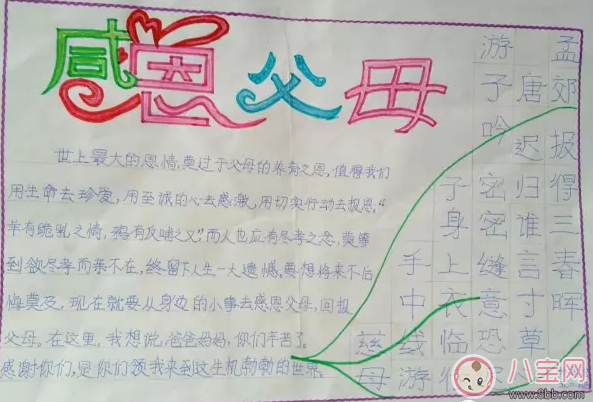 感恩父母
世上最大的恩情,莫过于父母的养育之恩,值得我们
用生命去珍爱,用至诚的心去感激,用切实行动去报恩。“
羊有跪乳之情,鸦有反哺之义”而人也应有尽孝之念,莫等
到欲尽孝而亲不在,终留下人生一大遗憾,要想将来不后
悔莫及,现在就要从身边的小事去感恩父母,回报
父母。在这里,我想说,爸爸妈妈,你们辛苦了。
感谢你们,是你们领我来到这生机勃勃的世界。
游子吟
唐
孟郊
慈母
手中线游
子身上衣临行
密密缝意恐
迟归谁言寸草
报得三春晖
八宝网
www.8bb.com